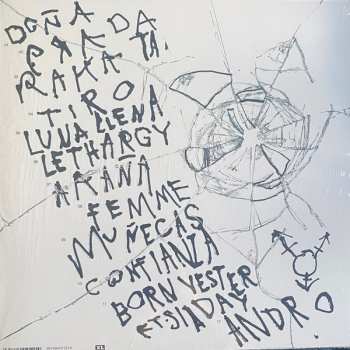 DOÑA
PRADA
RAKATA
TIRO
LUNA LLENA
LETHARGY
ARAÑA
FEMME
MUÑECAS
CONFIANZA
BORN YESTER
DAY
FT SIA
ANDRO
XL